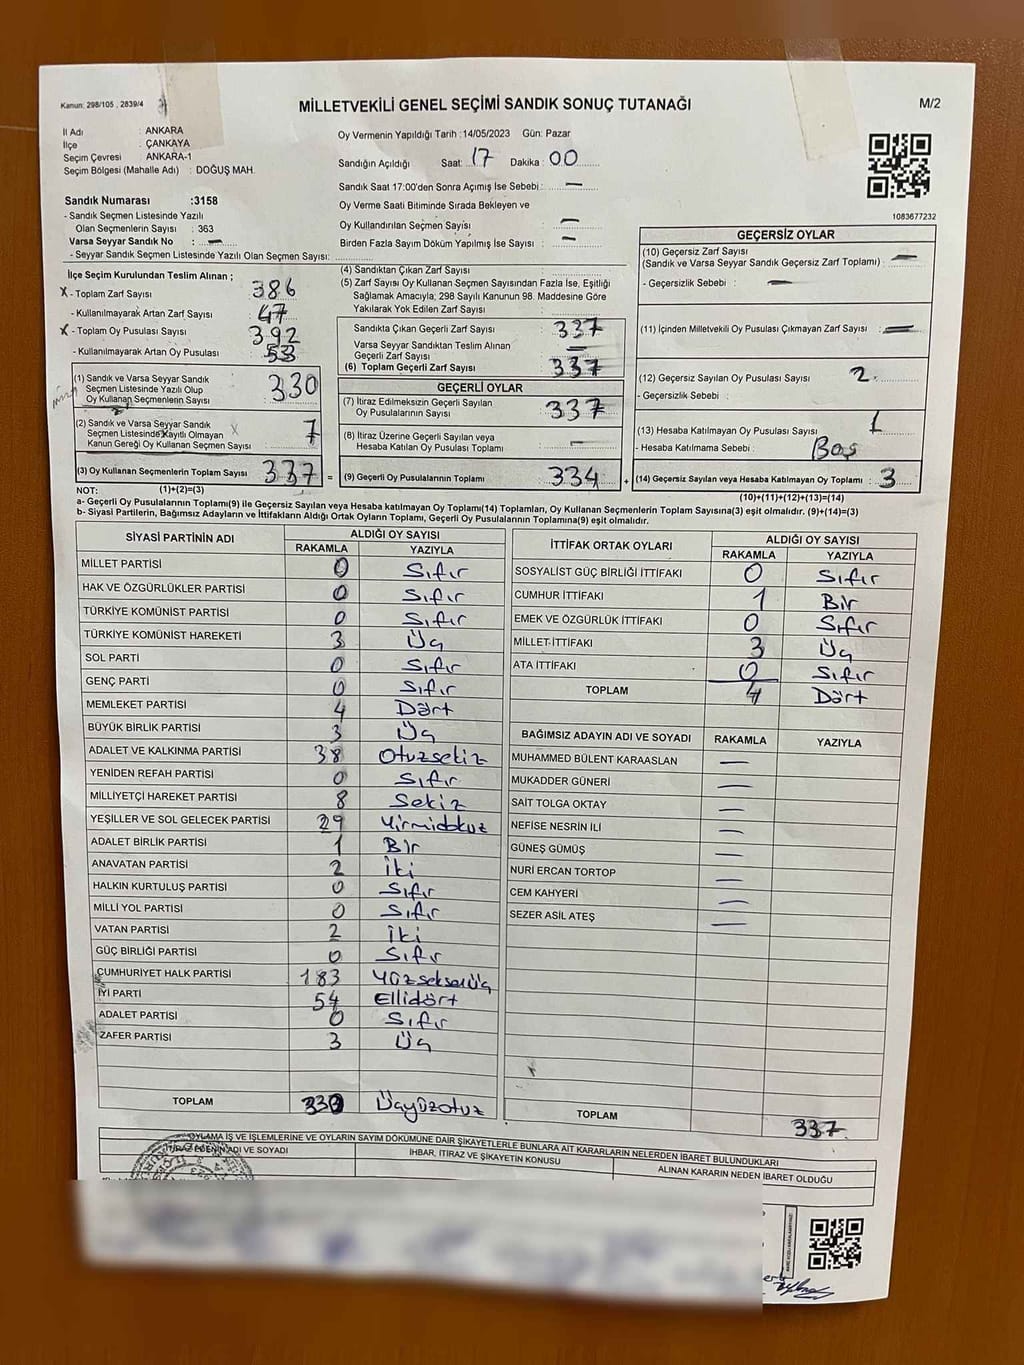 Kanun: 298/105 , 2839/4
MİLLETVEKİLİ GENEL SEÇİMİ SANDIK SONUÇ TUTANAĞI
M/2
İl Adı : ANKARA
İlçe : ÇANKAYA
Seçim Çevresi : ANKARA-1
Seçim Bölgesi (Mahalle Adı) : DOĞUŞ MAH.
Sandık Numarası :3158
- Sandık Seçmen Listesinde Yazılı
Olan Seçmenlerin Sayısı : 363
Varsa Seyyar Sandık No : —
- Seyyar Sandık Seçmen Listesinde Yazılı Olan Seçmen Sayısı:
Oy Vermenin Yapıldığı Tarih :14/05/2023 Gün: Pazar
Sandığın Açıldığı Saat: 17 Dakika : 00
Sandık Saat 17:00'den Sonra Açımış İse Sebebi : —
Oy Verme Saati Bitiminde Sırada Bekleyen ve
Oy Kullandırılan Seçmen Sayısı : —
Birden Fazla Sayım Döküm Yapılmış İse Sayısı : —
1083677232
İlçe Seçim Kurulundan Teslim Alınan ;
X - Toplam Zarf Sayısı : 386
- Kullanılmayarak Artan Zarf Sayısı : 47
X - Toplam Oy Pusulası Sayısı : 392
- Kullanılmayarak Artan Oy Pusulası : 53
(1) Sandık ve Varsa Seyyar Sandık
Seçmen Listesinde Yazılı Olup
Oy Kullanan Seçmenlerin Sayısı 330
(2) Sandık ve Varsa Seyyar Sandık
Seçmen Listesinde Kayıtlı Olmayan
Kanun Gereği Oy Kullanan Seçmen Sayısı 7
(3) Oy Kullanan Seçmenlerin Toplam Sayısı 337 =
(1)+(2)=(3)
(4) Sandıktan Çıkan Zarf Sayısı :
(5) Zarf Sayısı Oy Kullanan Seçmen Sayısından Fazla İse, Eşitliği
Sağlamak Amacıyla; 298 Sayılı Kanunun 98. Maddesine Göre
Yakılarak Yok Edilen Zarf Sayısı :
Sandıkta Çıkan Geçerli Zarf Sayısı : 337
Varsa Seyyar Sandıktan Teslim Alınan
Geçerli Zarf Sayısı : —
(6) Toplam Geçerli Zarf Sayısı : 337
GEÇERLİ OYLAR
(7) İtiraz Edilmeksizin Geçerli Sayılan
Oy Pusulalarının Sayısı : 337
(8) İtiraz Üzerine Geçerli Sayılan veya
Hesaba Katılan Oy Pusulası Toplamı : —
(9) Geçerli Oy Pusulalarının Toplamı : 334 +
GEÇERSİZ OYLAR
(10) Geçersiz Zarf Sayısı
(Sandık ve Varsa Seyyar Sandık Geçersiz Zarf Toplamı) : —
- Geçersizlik Sebebi : —
(11) İçinden Milletvekili Oy Pusulası Çıkmayan Zarf Sayısı : —
(12) Geçersiz Sayılan Oy Pusulası Sayısı : 2
- Geçersizlik Sebebi :
(13) Hesaba Katılmayan Oy Pusulası Sayısı : 1
- Hesaba Katılmama Sebebi : Boş
(14) Geçersiz Sayılan veya Hesaba Katılmayan Oy Toplamı : 3
(10)+(11)+(12)+(13)=(14)
NOT:
a- Geçerli Oy Pusulalarının Toplamı(9) ile Geçersiz Sayılan veya Hesaba katılmayan Oy Toplamı(14) Toplamları, Oy Kullanan Seçmenlerin Toplam Sayısına(3) eşit olmalıdır. (9)+(14)=(3)
b- Siyasi Partilerin, Bağımsız Adayların ve İttifakların Aldığı Ortak Oyların Toplamı, Geçerli Oy Pusulalarının Toplamına(9) eşit olmalıdır.
SİYASİ PARTİNİN ADI ALDIĞI OY SAYISI
RAKAMLA YAZIYLA
MİLLET PARTİSİ 0 Sıfır
HAK VE ÖZGÜRLÜKLER PARTİSİ 0 Sıfır
TÜRKİYE KOMÜNİST PARTİSİ 0 Sıfır
TÜRKİYE KOMÜNİST HAREKETİ 3 Üç
SOL PARTİ 0 Sıfır
GENÇ PARTİ 0 Sıfır
MEMLEKET PARTİSİ 4 Dört
BÜYÜK BİRLİK PARTİSİ 3 Üç
ADALET VE KALKINMA PARTİSİ 38 Otuzsekiz
YENİDEN REFAH PARTİSİ 0 Sıfır
MİLLİYETÇİ HAREKET PARTİSİ 8 Sekiz
YEŞİLLER VE SOL GELECEK PARTİSİ 29 Yirmidokuz
ADALET BİRLİK PARTİSİ 1 Bir
ANAVATAN PARTİSİ 2 İki
HALKIN KURTULUŞ PARTİSİ 0 Sıfır
MİLLİ YOL PARTİSİ 0 Sıfır
VATAN PARTİSİ 2 İki
GÜÇ BİRLİĞİ PARTİSİ 0 Sıfır
CUMHURİYET HALK PARTİSİ 183 Yüzseksenüç
İYİ PARTİ 54 Ellidört
ADALET PARTİSİ 0 Sıfır
ZAFER PARTİSİ 3 Üç
TOPLAM 330 Üçyüzotuz
İTTİFAK ORTAK OYLARI ALDIĞI OY SAYISI
RAKAMLA YAZIYLA
SOSYALİST GÜÇ BİRLİĞİ İTTİFAKI 0 Sıfır
CUMHUR İTTİFAKI 1 Bir
EMEK VE ÖZGÜRLÜK İTTİFAKI 0 Sıfır
MİLLET İTTİFAKI 3 Üç
ATA İTTİFAKI 0 Sıfır
TOPLAM 4 Dört
BAĞIMSIZ ADAYIN ADI VE SOYADI RAKAMLA YAZIYLA
MUHAMMED BÜLENT KARAASLAN —
MUKADDER GÜNERİ —
SAİT TOLGA OKTAY —
NEFİSE NESRİN İLİ —
GÜNEŞ GÜMÜŞ —
NURİ ERCAN TORTOP —
CEM KAHYERİ —
SEZER ASİL ATEŞ —
TOPLAM 337
OYLAMA İŞ VE İŞLEMLERİNE VE OYLARIN SAYIM DÖKÜMÜNE DAİR ŞİKAYETLERLE BUNLARA AİT KARARLARIN NELERDEN İBARET BULUNDUKLARI
İTİRAZ EDENİN ADI VE SOYADI
İHBAR, İTİRAZ VE ŞİKAYETİN KONUSU
ALINAN KARARIN NEDEN İBARET OLDUĞU